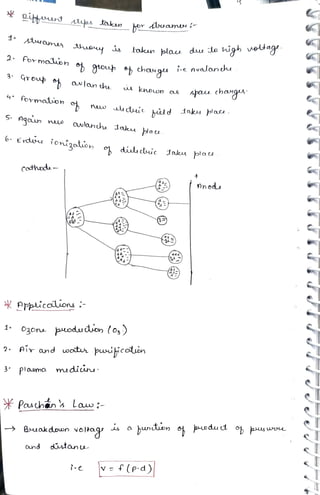 * Different steps taken for streamer :-
1- streamer theory is taken place due to high voltage.
2- Formation of group of charges i.e Avalanche
3- Group of avlanche is known as space charges.
4- Formation of new electric field takes place.
5- Again new avalanche takes place
6- Entire ionization of dielectric takes place.
cathode -
+
Anode
* Applications :-
1- Ozone production (O3)
2- Air and water purification
3- plasma medicine.
* Paschen's Law :-
→ Breakdown voltage is a function of product of pressure
and distance.
i.e V = f (p.d)